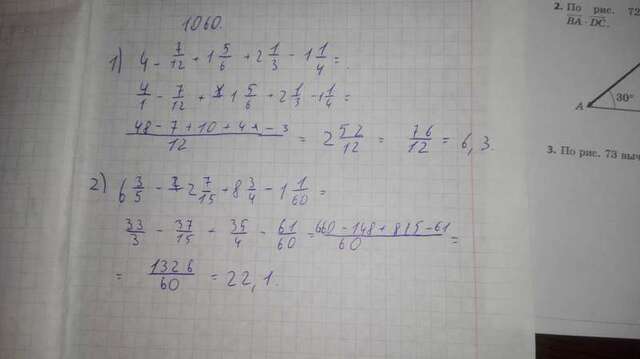 1060.
1) 4 - 7/12 + 1 5/6 + 2 1/3 - 1 1/4 =
4/1 - 7/12 + 1 5/6 + 2 1/3 - 1 1/4 =
(48 - 7 + 10 + 4 - 3)/12 = 2 52/12 = 76/12 = 6,3.
2) 6 3/5 - 2 7/15 + 8 3/4 - 1 1/60 =
33/3 - 37/15 + 35/4 - 61/60 = (660 - 148 + 815 - 61)/60 =
= 1326/60 = 22,1.
2. По рис. 72
BA · DC.
A 30°
3. По рис. 73 выч